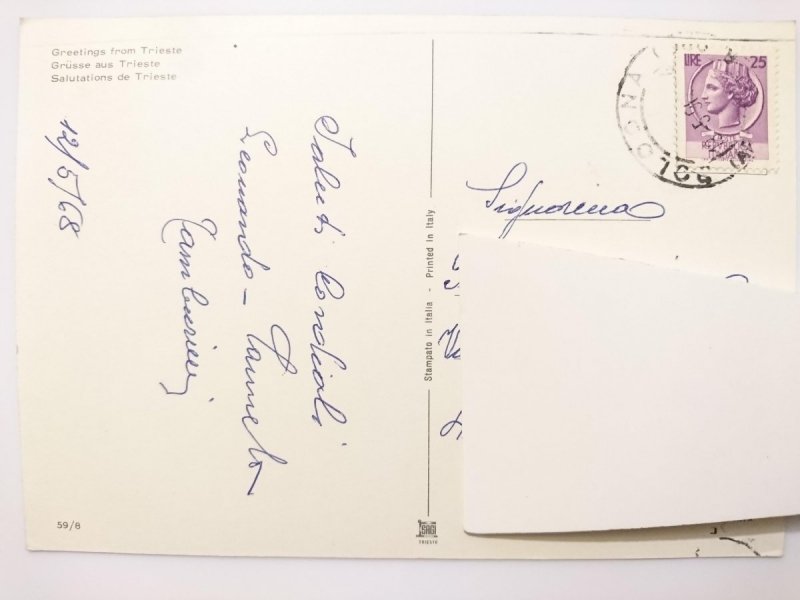 Greetings from Trieste
Grüsse aus Trieste
Salutations de Trieste
12/5/68
Saluti Cordiali
Leonardo - Carmelo -
Tamburini
59/8
Stampato in Italia - Printed in Italy
SAGI
TRIESTE
LIRE 25
BOLOGNA
Signorina